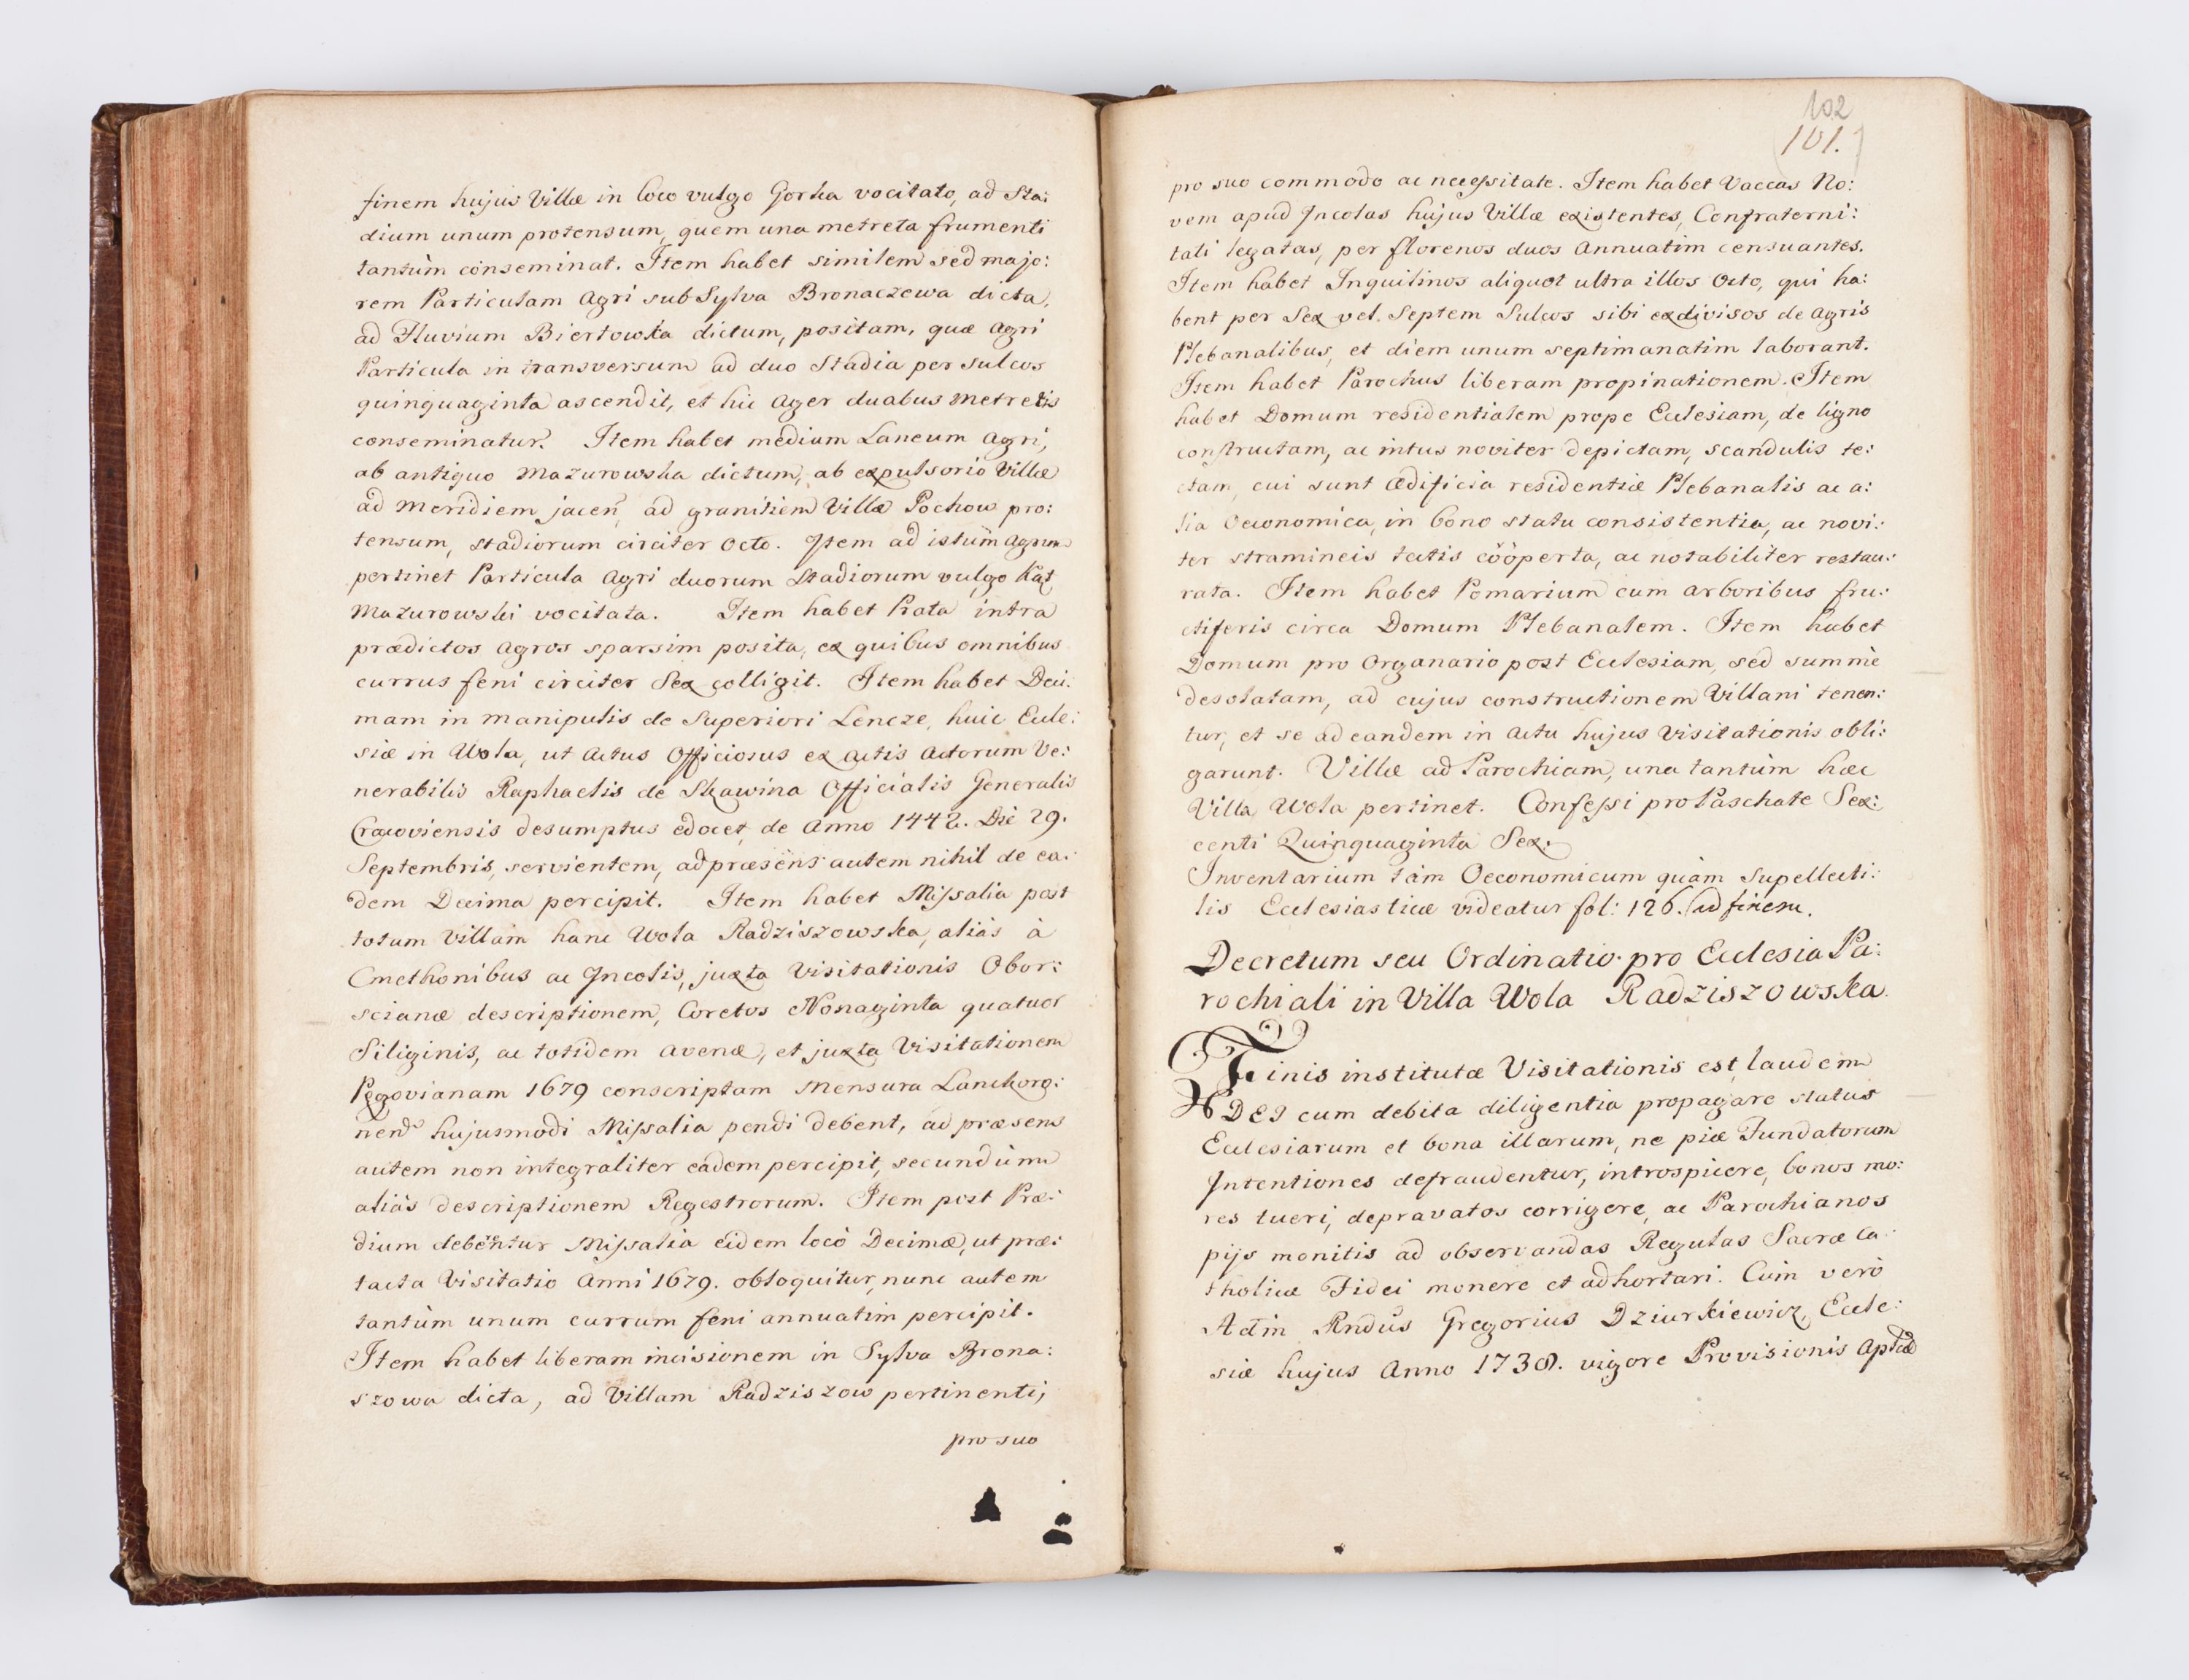 finem hujus Villæ in loco vulgo Gorka vocitato, ad Sta:
dium unum protensum, quem una metreta frumenti
tantùm conseminat. Item habet similem sed majo:
rem Particulam Agri sub Sylva Bronaczewa dicta,
ad Fluvium Biertowka dictum, positam, quæ Agri
Particula in transversum ad duo Stadia per sulcos
quinquaginta ascendit, et hic Ager duabus metretis
conseminatur. Item habet medium Laneum Agri,
ab antiquo Mazurowska dictum, ab expulsorio Villæ
ad Meridiem jacen, ad granitiem Villæ Pochow pro:
tensum, stadiorum circiter Octo. Item ad istum Agrum
pertinet Particula Agri duorum Stadiorum vulgo Kąt
Mazurowski vocitata. Item habet Prata intra
prædictos Agros sparsim posita, ex quibus omnibus
currus feni circiter Sex colligit. Item habet Deci:
mam in manipulis de Superiori Lencze, huic Eccle:
siæ in Wola, ut Actus Officiosus ex actis Actorum Ve:
nerabilis Raphaelis de Skawina Officialis Generalis
Cracoviensis desumptus edocet de Anno 1442. Die 29.
Septembris, servientem, ad præsens autem nihil de ea:
dem Decima percipit. Item habet Missalia post
totum Villam hanc Wola Radziszowska, aliàs à
Cmethonibus ac Incolis, juxta Visitationis Obor:
scianæ descriptionem, Coretos Nonaginta quatuor
Siliginis, ac totidem avenæ, et juxta Visitationem
Pęgovianam 1679 conscriptam Mensura Lanckoro:
nens hujusmodi Missalia pendi debent, ad præsens
autem non integraliter eadem percipit, secundùm
aliàs descriptionem Regestrorum. Item post Præ:
dium debentur Missalia eidem locò Decimæ, ut præ:
tacta Visitatio Anni 1679. obloquitur, nunc autem
tantùm unum currum feni annuatim percipit.
Item habet liberam incisionem in Sylva Brona:
szowa dicta, ad Villam Radziszow pertinenti,
pro suo
102
101.
pro suo commodo ac necessitate. Item habet Vaccas No:
vem apud Incolas hujus Villæ existentes, Confraterni:
tati legatas, per florenos duos Annuatim censuantes.
Item habet Inquilinos aliquot ultra illos Octo, qui ha:
bent per Sex vel Septem Sulcos sibi exdivisos de Agris
Plebanalibus, et diem unum septimanatim laborant.
Item habet Parochus liberam propinationem. Item
habet Domum residentialem prope Ecclesiam, de ligno
constructam, ac intus noviter depictam, scandulis te:
ctam, cui sunt Ædificia residentiæ Plebanalis ac a:
lia Oeconomica, in bono statu consistentia, ac novi:
ter stramineis tectis cööperta, ac notabiliter restau:
rata. Item habet Pomarium cum Arboribus fru:
ctiferis circa Domum Plebanalem. Item habet
Domum pro Organario post Ecclesiam, sed summè
desolatam, ad cujus constructionem Villani tenen:
tur, et se ad eandem in actu hujus Visitationis obli:
garunt. Villæ ad Parochiam, una tantùm hæc
Villa Wola pertinet. Confessi pro Paschate Sex:
centi Quinquaginta Sex.
Inventarium tàm Oeconomicum quàm Supellecti:
lis Ecclesiasticæ videatur fol: 126. ad finem.
Decretum seu Ordinatio pro Ecclesia Pa:
rochiali in Villa Wola Radziszowska
Finis institutæ Visitationis est, laudem
DEI cum debita diligentia propagare status
Ecclesiarum et bona illarum, ne piæ Fundatorum
Intentiones defraudentur, introspicere, bonos mo:
res tueri, depravatos corrigere, ac Parochianos
pijs monitis ad observandas Regulas Sacræ Ca
tholicæ Fidei monere et adhortari. Cùm verò
Adm Rndus Gregorius Dziurkiewicz, Eccle:
siæ hujus Anno 1738. vigore Provisionis Apticæ